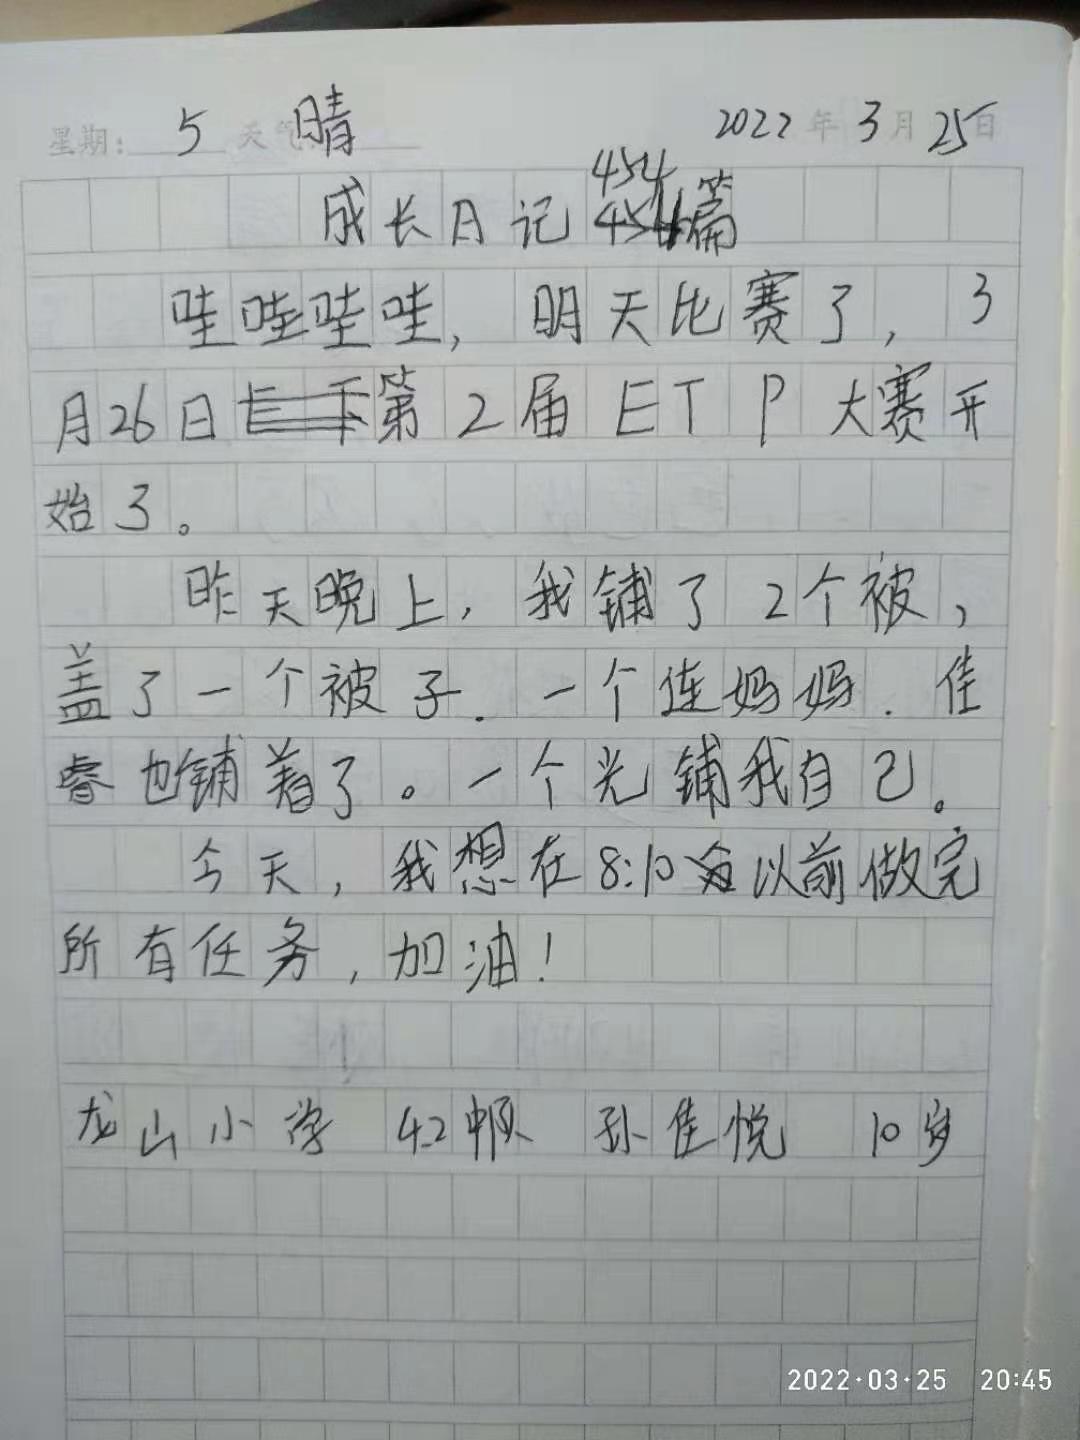 星期：5 天气 晴 2022年3月25日
454
成长日记 篇
哇哇哇哇，明天比赛了，3
月26日第2届ETP大赛开
始了。
昨天晚上，我铺了2个被，
盖了一个被子．一个连妈妈．佳
睿也铺着了。一个光铺我自己。
今天，我想在8:10分以前做完
所有任务，加油！
龙山小学 4.2 孙佳悦 10岁
2022·03·25 20:45